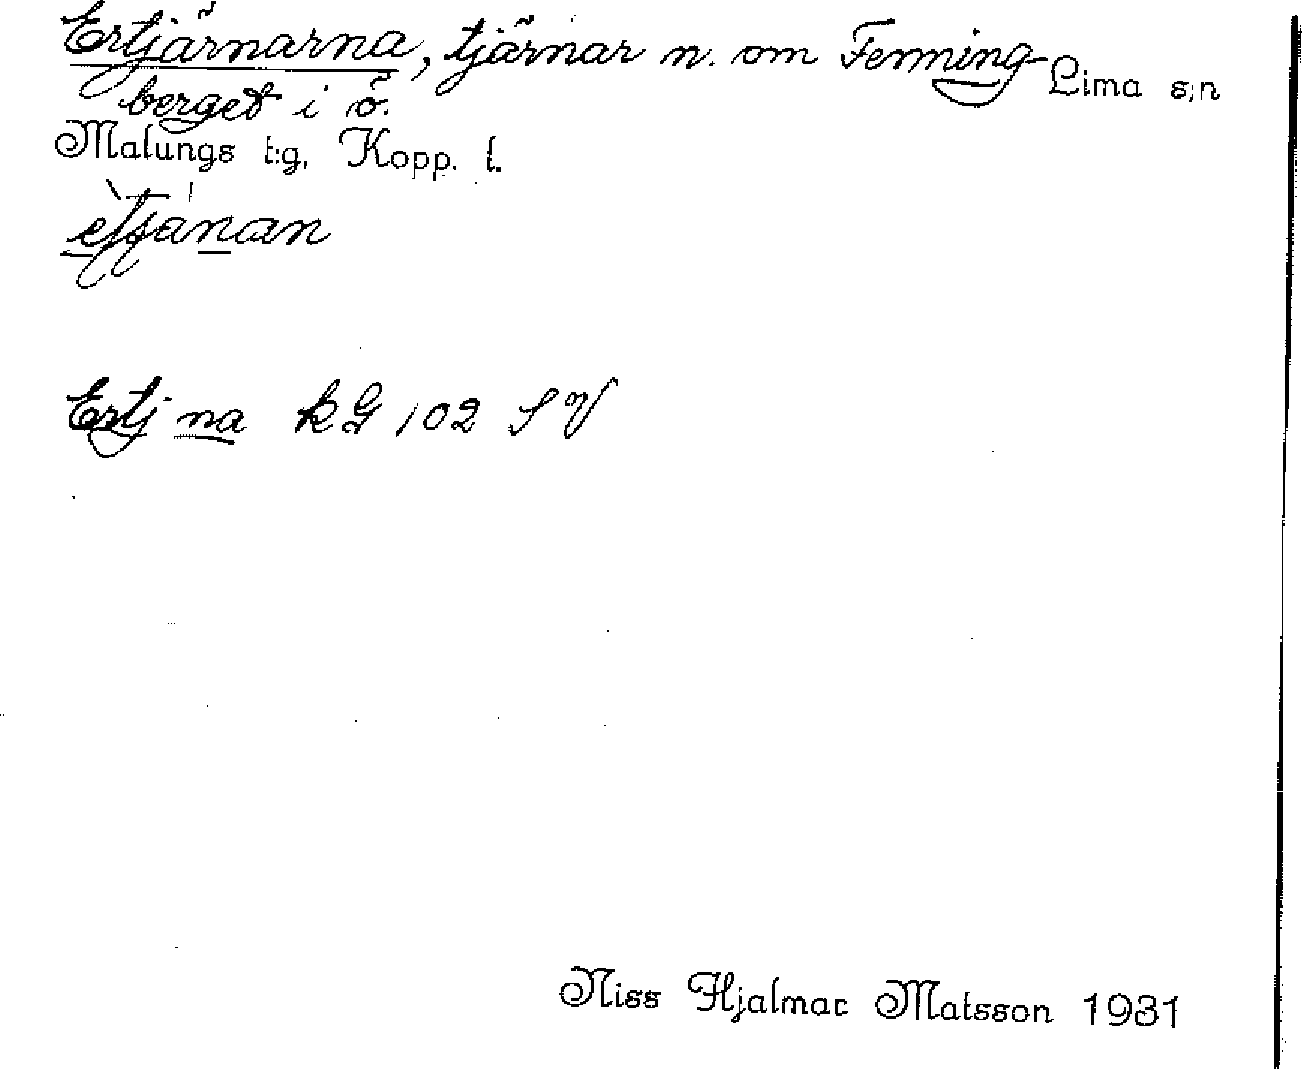 Ertjärnarna, tjärnar n. om Fenning-
berget i ö. Lima s;n
Malungs t:g, Kopp. l.
etjänan
Ertj na kG 102 SV
Niss Hjalmar Matsson 1931